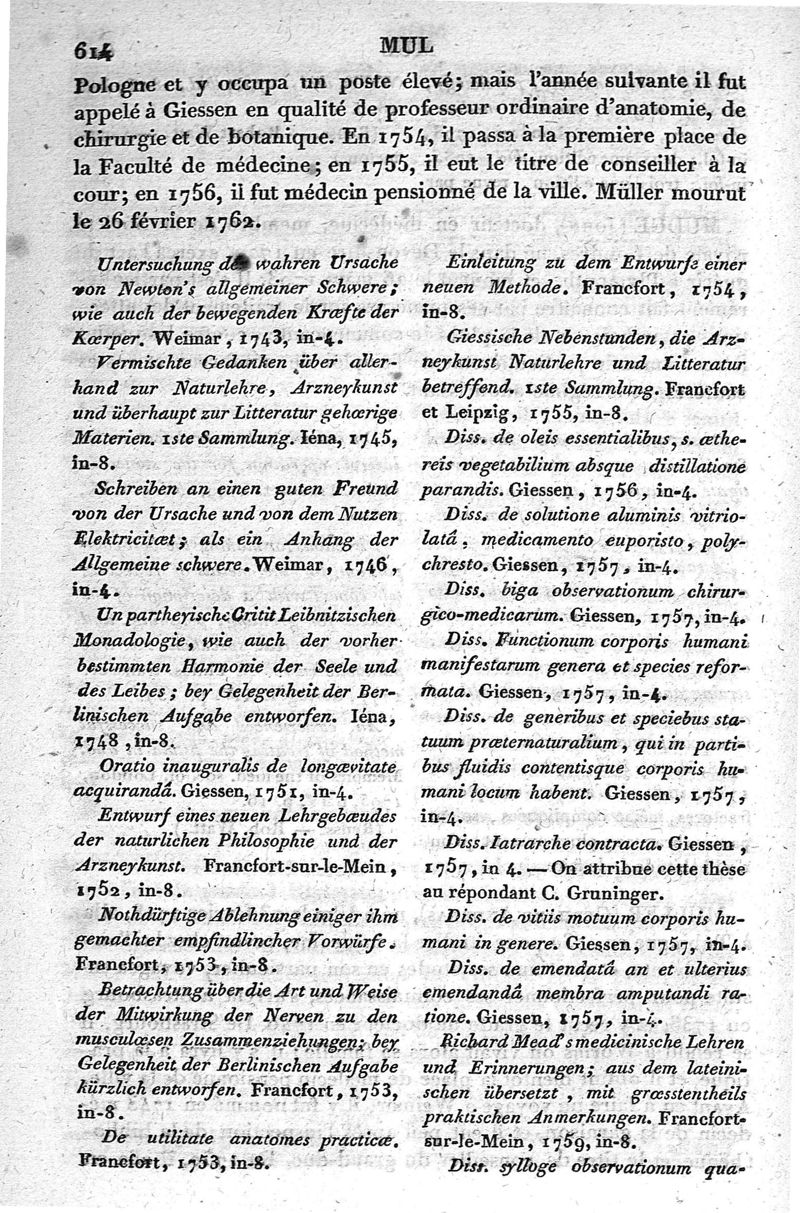 614
MUL
Pologne et y occupa un poste élevé; mais l'année suivante il fut
appelé à Giessen en qualité de professeur ordinaire d'anatomie, de
chirurgie et de botanique. En 1754, il passa à la première place de
la Faculté de médecine; en 1755, il eut le titre de conseiller à la
cour; en 1756, il fut médecin pensionné de la ville. Müller mourut
le 26 février 1762.
Untersuchung der wahren Ursache
von Newton's allgemeiner Schwere;
wie auch der bewegenden Kræfte der
Kœrper. Weimar, 1743, in-4.
Vermischte Gedanken über aller-
hand zur Naturlehre, Arzneykunst
und überhaupt zur Litteratur gehœrige
Materien. 1ste Sammlung. Iéna, 1745,
in-8.
Schreiben an einen guten Freund
von der Ursache und von dem Nutzen
Elektricitæt; als ein Anhang der
Allgemeine schwere. Weimar, 1746,
in-4.
Un partheyische Critit Leibnitzischen
Monadologie, wie auch der vorher
bestimmten Harmonie der Seele und
des Leibes; bey Gelegenheit der Ber-
linischen Aufgabe entworfen. Iéna,
1748, in-8.
Oratio inauguralis de longævitate
acquirandâ. Giessen, 1751, in-4.
Entwurf eines neuen Lehrgebæudes
der naturlichen Philosophie und der
Arzneykunst. Francfort-sur-le-Mein,
1752, in-8.
Nothdürftige Ablehnung einiger ihm
gemachter empfindlincher Vorwürfe.
Francfort, 1753, in-8.
Betrachtung über die Art und Weise
der Mitwirkung der Nerven zu den
musculœsen Zusammenziehungen; bey
Gelegenheit der Berlinischen Aufgabe
kürzlich entworfen. Francfort, 1753,
in-8.
De utilitate anatomes practicæ.
Francfort, 1753, in-8.
Einleitung zu dem Entwurfe einer
neuen Methode. Francfort, 1754,
in-8.
Giessische Nebenstunden, die Arz-
neykunst Naturlehre und Litteratur
betreffend. 1ste Sammlung. Francfort
et Leipzig, 1755, in-8.
Diss. de oleis essentialibus, s. æthe-
reis vegetabilium absque distillatione
parandis. Giessen, 1756, in-4.
Diss. de solutione aluminis vitrio-
latâ, medicamento euporisto, poly-
chresto. Giessen, 1757, in-4.
Diss. biga observationum chirur-
gico-medicarum. Giessen, 1757, in-4.
Diss. Functionum corporis humani
manifestarum genera et species refor-
mata. Giessen, 1757, in-4.
Diss. de generibus et speciebus sta-
tuum præternaturalium, qui in parti-
bus fluidis contentisque corporis hu-
mani locum habent. Giessen, 1757,
in-4.
Diss. Iatrarche contracta. Giessen,
1757, in 4. — On attribue cette thèse
au répondant C. Gruninger.
Diss. de vitiis motuum corporis hu-
mani in genere. Giessen, 1757, in-4.
Diss. de emendatâ an et ulterius
emendandâ membra amputandi ra-
tione. Giessen, 1757, in-4.
Richard Mead's medicinische Lehren
und Erinnerungen; aus dem lateini-
schen übersetzt, mit grœsstentheils
praktischen Anmerkungen. Francfort-
sur-le-Mein, 1759, in-8.
Diss. sylloge observationum qua-